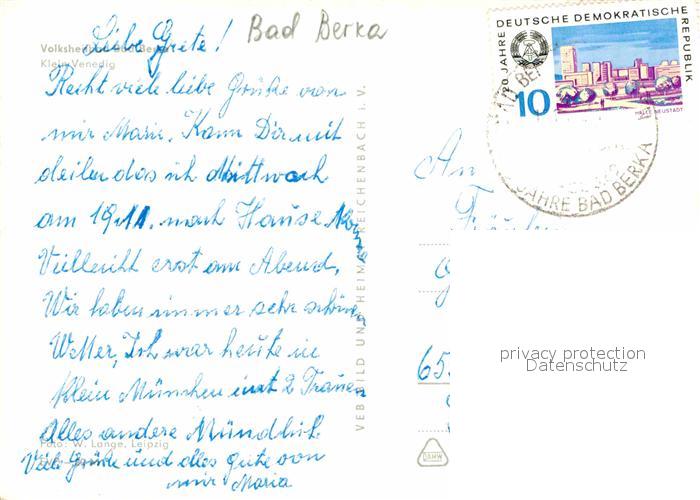 Bad Berka
Liebe Grete!
Volksheilbad Bad Berka
Klein Venedig
Recht viele liebe Grüße von
mir Marie. Kann Dir mit
deilen das ich Mittwoch
am 19.11. nach Hause kome
Vielleicht erst am Abend.
Wir haben immer sehr schönes
Wetter, Ich war heute in
Klein München mit 2 Frauen
Alles andere Mündlich.
Foto: W. Lange, Leipzig
Viele Grüße und alles gute von
mir Maria
VEB BILD UND HEIMAT REICHENBACH i. V.
20 JAHRE DEUTSCHE DEMOKRATISCHE REPUBLIK
10
HALLE-NEUSTADT
JAHRE BAD BERKA
An
65
privacy protection
Datenschutz
DAMW